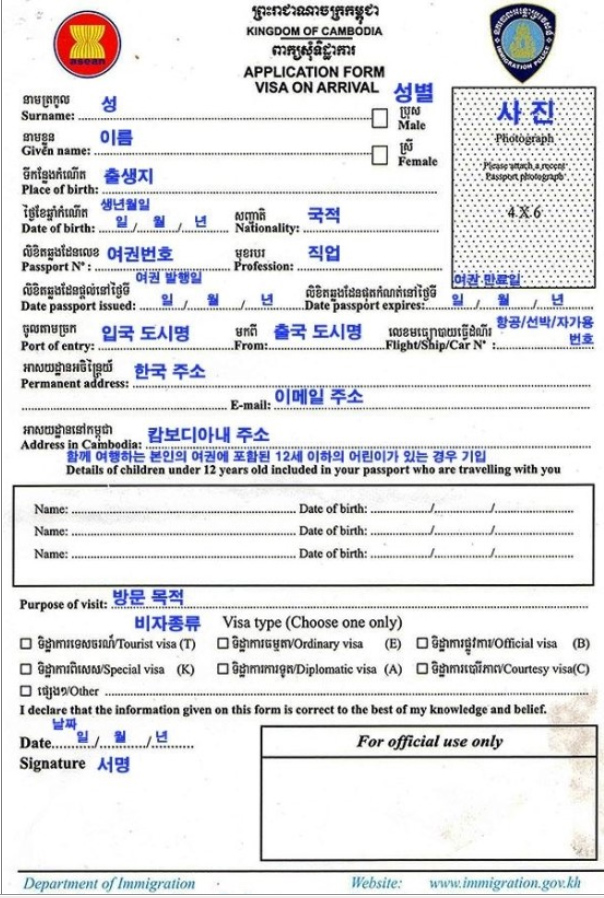 ព្រះរាជាណាចក្រកម្ពុជា
KINGDOM OF CAMBODIA
ពាក្យសុំទិដ្ឋាការ
APPLICATION FORM
VISA ON ARRIVAL
asean
IMMIGRATION POLICE
នាមត្រកូល 성 성별
Surname: ប្រុស Male
នាមខ្លួន 이름 ស្រី
Given name: Female
사 진
Photograph
Please attach a recent
Passport photograph
4 X 6
ទីកន្លែងកំណើត 출생지
Place of birth:
ថ្ងៃខែឆ្នាំកំណើត 생년월일 សញ្ជាតិ 국적
Date of birth: 일 / 월 / 년 Nationality:
លិខិតឆ្លងដែនលេខ 여권번호 មុខរបរ 직업
Passport Nº : Profession:
여권 발행일 여권 만료일
លិខិតឆ្លងដែនផ្តល់នៅថ្ងៃទី លិខិតឆ្លងដែនផុតកំណត់នៅថ្ងៃទី
Date passport issued: 일 / 월 / 년 Date passport expires: 일 / 월 / 년
ចូលតាមច្រក 입국 도시명 មកពី 출국 도시명 លេខមធ្យោបាយធ្វើដំណើរ 항공/선박/자가용
Port of entry: From: Flight/Ship/Car Nº : 번호
អាសយដ្ឋានអចិន្ត្រៃយ៍ 한국 주소
Permanent address:
E-mail: 이메일 주소
អាសយដ្ឋាននៅកម្ពុជា
Address in Cambodia: 캄보디아내 주소
함께 여행하는 본인의 여권에 포함된 12세 이하의 어린이가 있는 경우 기입
Details of children under 12 years old included in your passport who are travelling with you
Name: Date of birth: / /
Name: Date of birth: / /
Name: Date of birth: / /
Purpose of visit: 방문 목적
비자종류 Visa type (Choose one only)
ទិដ្ឋាការទេសចរណ៍/Tourist visa (T) ទិដ្ឋាការធម្មតា/Ordinary visa (E) ទិដ្ឋាការផ្លូវការ/Official visa (B)
ទិដ្ឋាការពិសេស/Special visa (K) ទិដ្ឋាការការទូត/Diplomatic visa (A) ទិដ្ឋាការបើរីភាព/Courtesy visa(C)
ផ្សេងៗ/Other
I declare that the information given on this form is correct to the best of my knowledge and belief.
날짜
Date 일 / 월 / 년
Signature 서명
For official use only
Department of Immigration Website: www.immigration.gov.kh